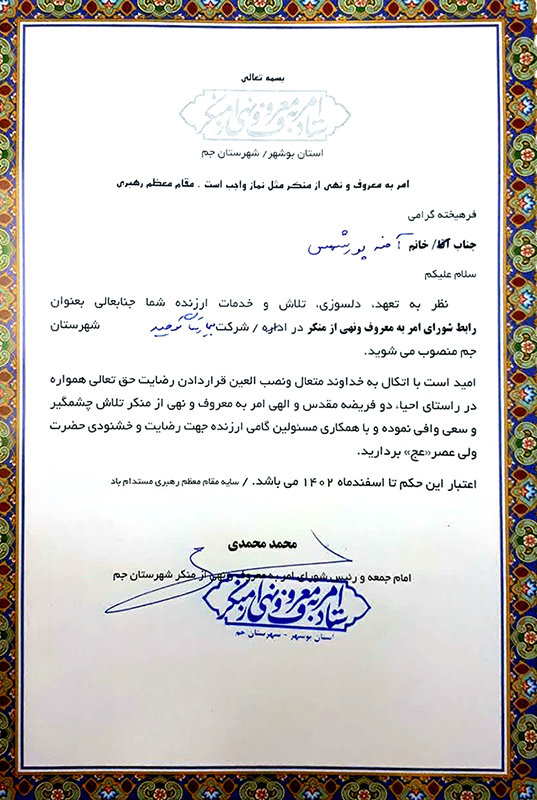 بسمه تعالی
ستاد امر به معروف و نهی از منکر
استان بوشهر/ شهرستان جم
امر به معروف و نهی از منکر مثل نماز واجب است . مقام معظم رهبری
فرهیخته گرامی
جناب آقا/ خانم آمنه پورشمس
سلام علیکم
نظر به تعهد، دلسوزی، تلاش و خدمات ارزنده شما جنابعالی بعنوان
رابط شورای امر به معروف ونهی از منکر در اداره / شرکت بیمارستان توحید شهرستان
جم منصوب می شوید.
امید است با اتکال به خداوند متعال ونصب العین قراردادن رضایت حق تعالی همواره
در راستای احیاء دو فریضه مقدس و الهی امر به معروف و نهی از منکر تلاش چشمگیر
و سعی وافی نموده و با همکاری مسئولین گامی ارزنده جهت رضایت و خشنودی حضرت
ولی عصر«عج» بردارید.
اعتبار این حکم تا اسفندماه ۱۴۰۲ می باشد. / سایه مقام معظم رهبری مستدام باد
محمد محمدی
امام جمعه و رئیس شورای امر به معروف و نهی از منکر شهرستان جم
ستاد امر به معروف و نهی از منکر
استان بوشهر - شهرستان جم